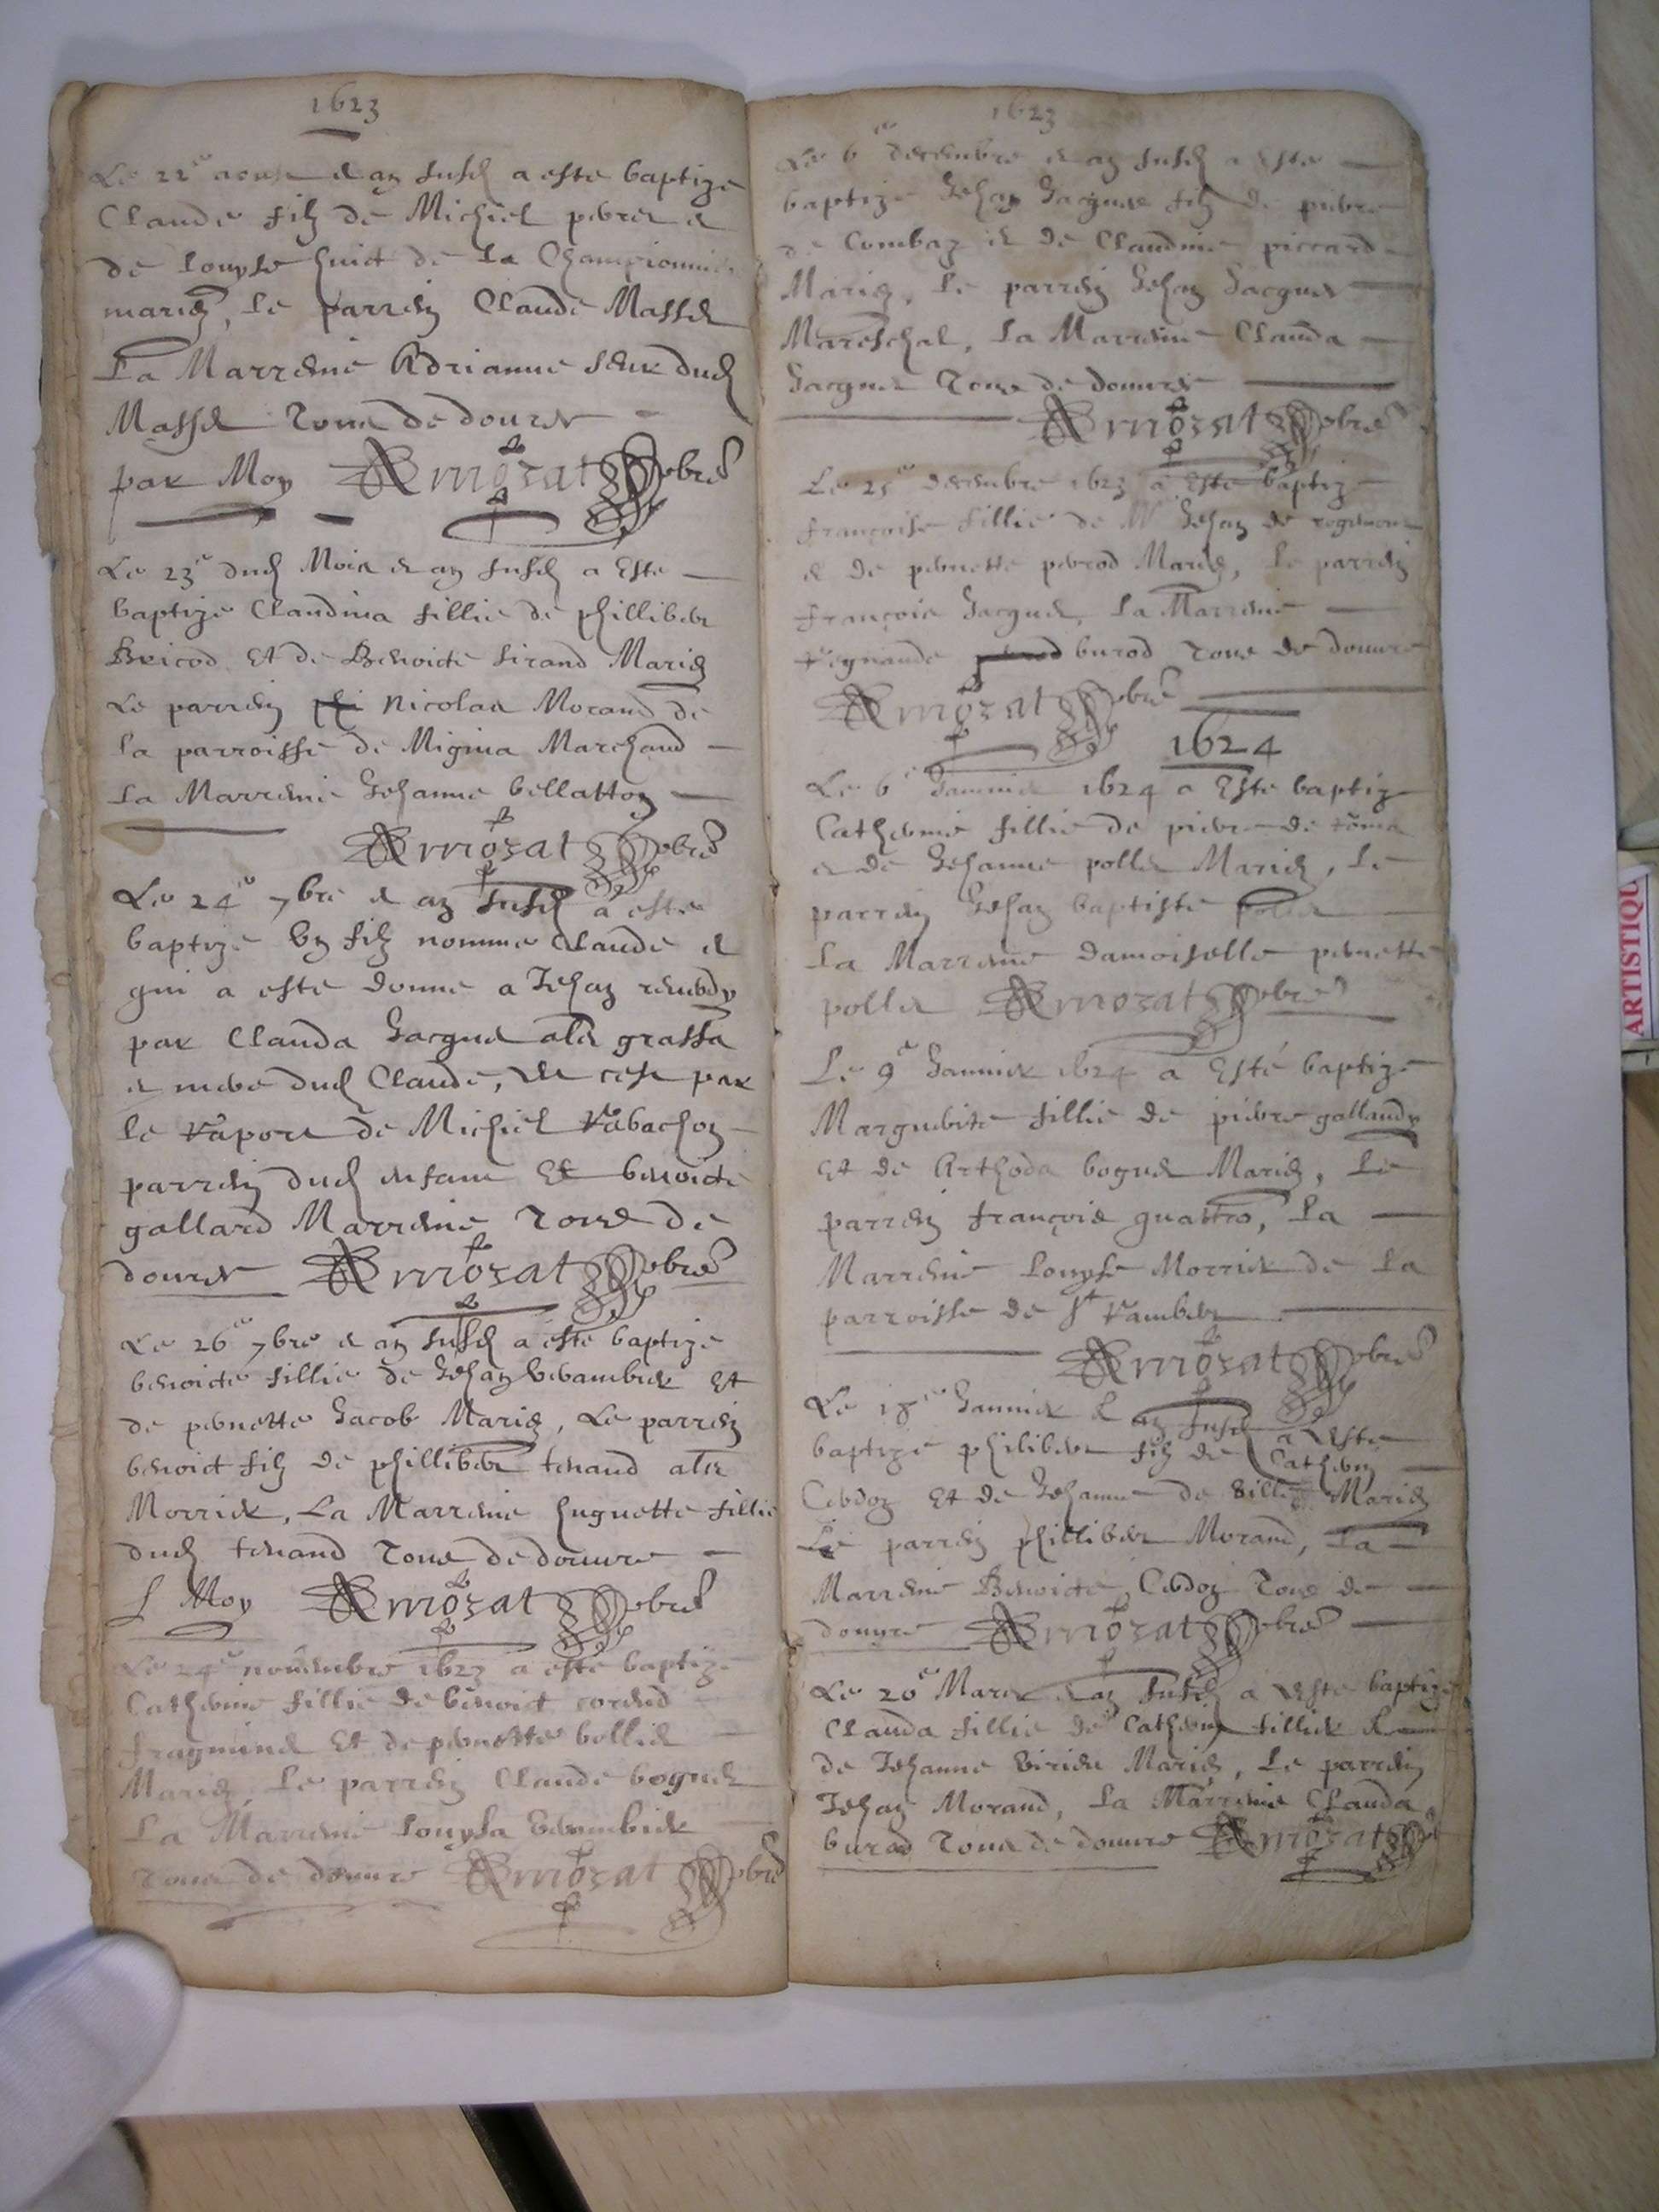 1623
Le 22e aoust et an susd a este baptize
Claude filz de Michiel perret et
de Louyse huict de la Championnie
mariez, Le parrein Claude Masset
La Marreine Adrianne seur dud
Masset Tous de douvre
par Moy Armozat pbre
Le 23e dud Mois et an susd a Este
baptize Claudina fillie de phillibert
Bricod Et de Benoicte sirand Mariez
Le parrein Nicolas Morand de
la parroisse de Migina Marchand
La Marreine Jehanne bellatton
Armozat pbre
Le 24e 7bre et an susd a este
baptize Un filz nomme Claude et
qui a este donne a Jehan
par Clauda Jacquet als grassa
et mere dud Claude, et cest par
le raport de Michiel Rabachon
parrein dud enfant Et benoicte
gallard Marreine Tous de
douvre Armozat pbre
Le 26e 7bre et an susd a este baptize
benoicte fillie de Jehan Verambier Et
de pernette Jacob Mariez, Le parrein
benoict filz de phillibert tenand als
Morrier, La Marreine huguette fillie
dud tenand Tous de douvre
p Moy Armozat pbre
Le 24e novembre 1623 a este baptize
Catherine fillie de benoict
Et de pernette bolliet
Mariez, Le parrein Claude boguet
La Marreine Louysa Verambier
Tous de douvre Armozat pbre
1623
Le 6e decembre et an susd a Este
baptize Jehan Jacques filz de pierre
de Combaz et de Claudine piccard
Mariez, Le parrein Jehan Jacques
Mareschal, La Marreine Clauda
Jacquet Tous de douvre
Armozat pbre
Le 25e decembre 1623 a Este baptize
françoise fillie de Mr Jehan de rogemont
et de pernette perrod Mariez, Le parrein
françois Jacquet, La Marreine
Regnaude burod Tous de douvre
Armozat pbre
1624
Le 6e Janvier 1624 a Este baptize
Catherine fillie de pierre de
et de Jehanne pollet Mariez, Le
parrein Jehan baptiste pollet
La Marreine damoiselle pernette
pollet Armozat pbre
Le 9e Janvier 1624 a Este baptize
Marguerite fillie de pierre gallandy
Et de Arthoda boguet Mariez, Le
parrein françois quattro, La
Marreine Louyse Morrier de La
parroisse de St Rambert
Armozat pbre
Le 18e Janvier et an susd a Este
baptize philibert filz de Catherin
Cerdon Et de Jehanne de Mariez
Le parrein phillibert Morand, La
Marreine Benoicte Cerdon Tous de
douvre Armozat pbre
Le 20e Mars et an susd a Este baptize
Clauda fillie de Catherin fillier et
de Jehanne Mariez, Le parrein
Jehan Morand, La Marreine Clauda
burod Tous de douvre Armozat
ARTISTIQU